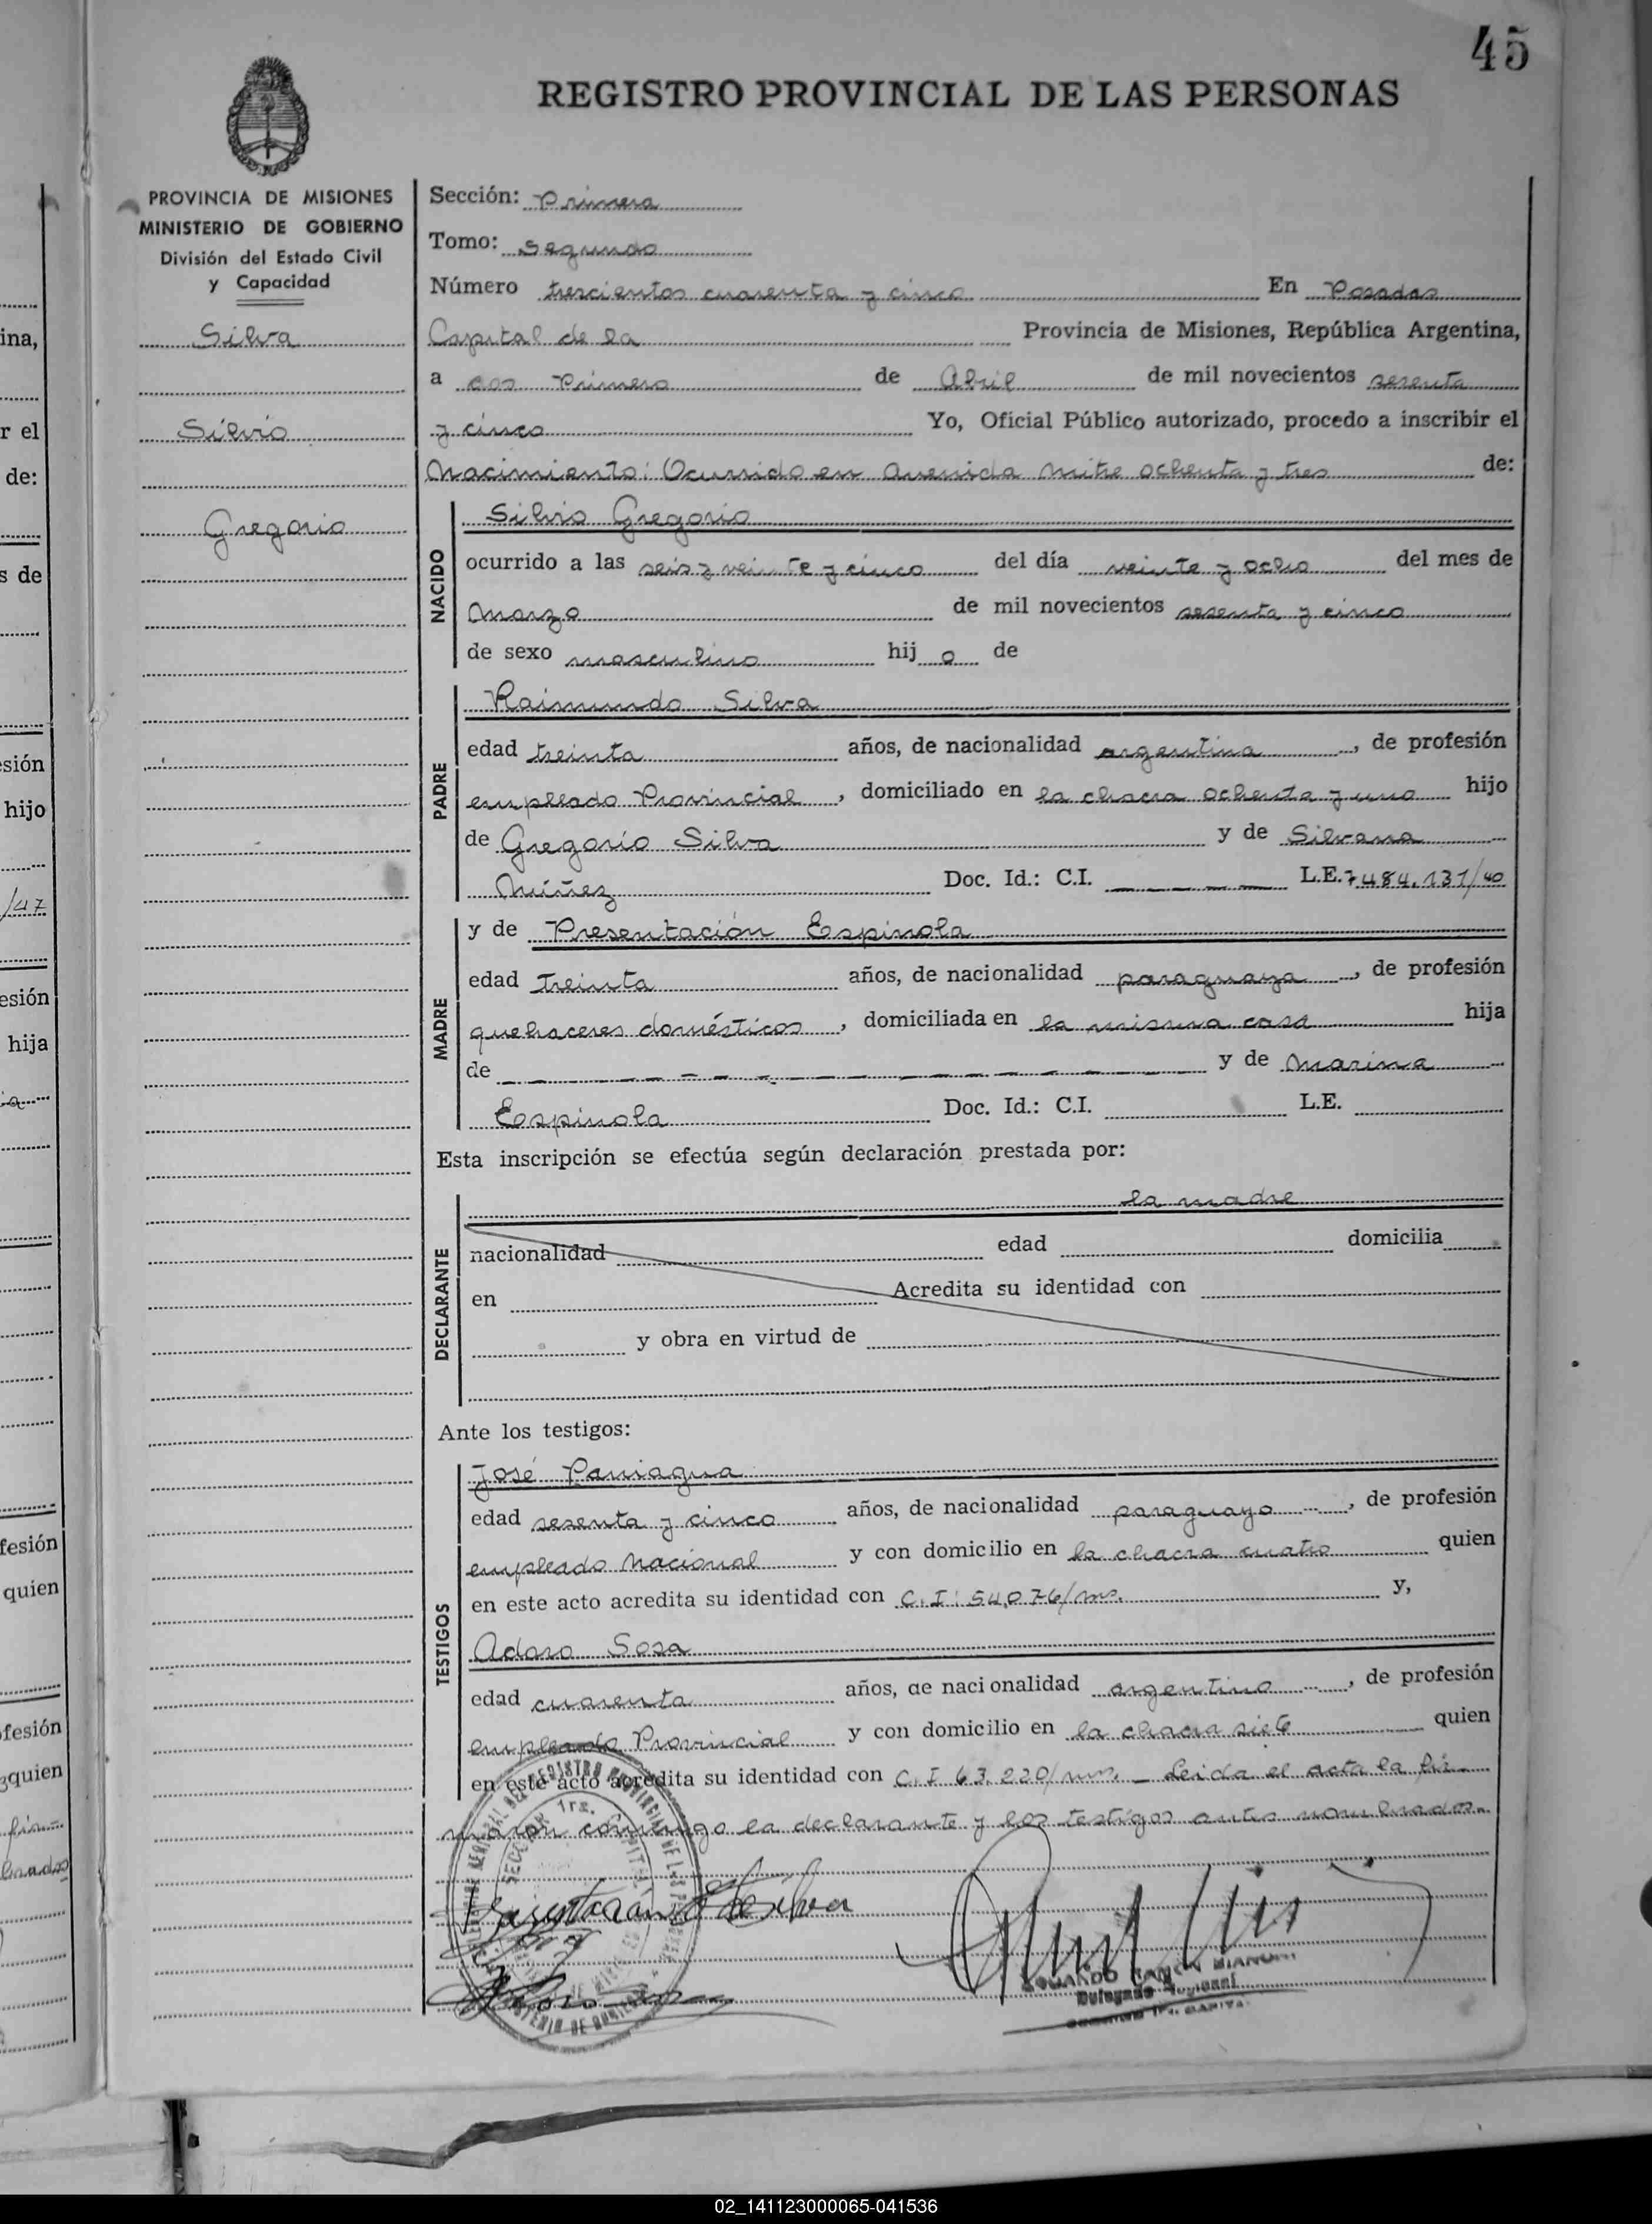 45
REGISTRO PROVINCIAL DE LAS PERSONAS
PROVINCIA DE MISIONES
MINISTERIO DE GOBIERNO
División del Estado Civil
y Capacidad
Silva
Silvio
Gregorio
Sección: Primera
Tomo: Segundo
Número trescientos cuarenta y cinco En Posadas
Capital de la Provincia de Misiones, República Argentina,
a los Primero de Abril de mil novecientos sesenta
y cinco Yo, Oficial Público autorizado, procedo a inscribir el
Nacimiento: Ocurrido en Avenida Mitre ochenta y tres de:
NACIDO
Silvio Gregorio
ocurrido a las seis y veinte y cinco del día veinte y ocho del mes de
Marzo de mil novecientos sesenta y cinco
de sexo masculino hij o de
PADRE
Raimundo Silva
edad treinta años, de nacionalidad argentina, de profesión
empleado Provincial, domiciliado en la chacra ochenta y uno hijo
de Gregorio Silva y de Silvana
Núñez Doc. Id.: C.I. — — — — L.E. 7484.131/40
MADRE
y de Presentación Espinola
edad treinta años, de nacionalidad paraguaya, de profesión
quehaceres domésticos, domiciliada en la misma casa hija
de — — — — — — — — — — y de Marina
Espinola Doc. Id.: C.I. L.E.
Esta inscripción se efectúa según declaración prestada por:
DECLARANTE
la madre
nacionalidad edad domicilia
en Acredita su identidad con
y obra en virtud de
Ante los testigos:
TESTIGOS
José Paniagua
edad sesenta y cinco años, de nacionalidad paraguayo, de profesión
empleado Nacional y con domicilio en la chacra cuatro quien
en este acto acredita su identidad con C.I: 54.076/ms. y,
Adaro Sosa
edad cuarenta años, de nacionalidad argentino, de profesión
empleado Provincial y con domicilio en la chacra siete quien
en este acto acredita su identidad con C.I 63.220/mns. — Leida el acta la fir-
maron conmigo la declarante y los testigos antes nombrados.
Presentación E de Silva
Delegado Regional
02_141123000065-041536